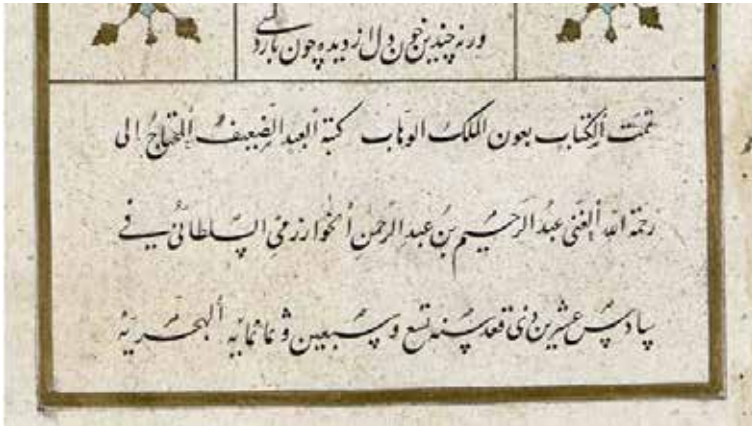 ورنه چندین خون دل از دیده چون باردلسی
تمت الکتاب بعون الملک الوهاب کتبه العبد الضعیف المحتاج الی
رحمة الله الغنی عبد الرحیم بن عبد الرحمن الخوارزمی السلطانی فی
سادس عشرین ذی قعده سنه تسع وسبعین وثمانمایه الهجریه